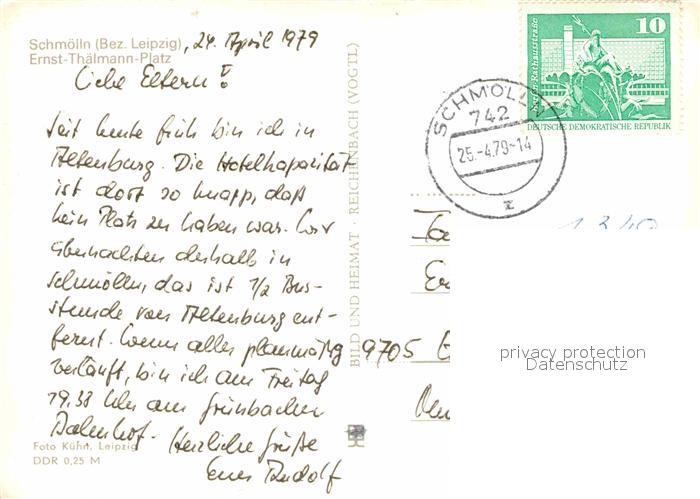 Schmölln (Bez. Leipzig), 24. April 1979
Ernst-Thälmann-Platz
Liebe Eltern!
Seit heute früh bin ich in
Altenburg. Die Hotelkapazität
ist dort so knapp, daß
kein Platz zu haben war. Wir
übernachten deshalb in
Schmölln, das ist 1/2 Bus-
stunde von Altenburg ent-
fernt. Wenn alles planmäßig
verläuft, bin ich am Freitag
19.38 Uhr am Grünbacher
Bahnhof. Herzliche Grüße
Euer Rudolf
Foto Kühn, Leipzig
DDR 0,25 M
BILD UND HEIMAT · REICHENBACH (VOGTL)
10
Berlin, Rathausstraße
DEUTSCHE DEMOKRATISCHE REPUBLIK
SCHMÖLLN
742
25.-4.79-14
z
9705
privacy protection
Datenschutz